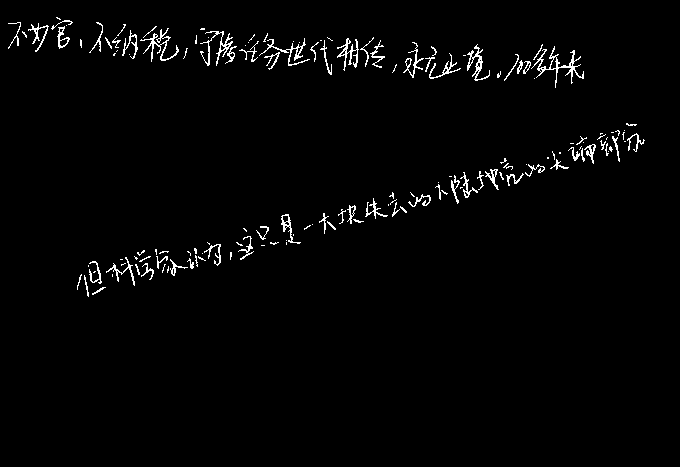 不为官，不纳税，守陵任务世代相传，永无止境。100多年来
但科学家认为，这只是一大块失去的大陆地壳的尖端部分。